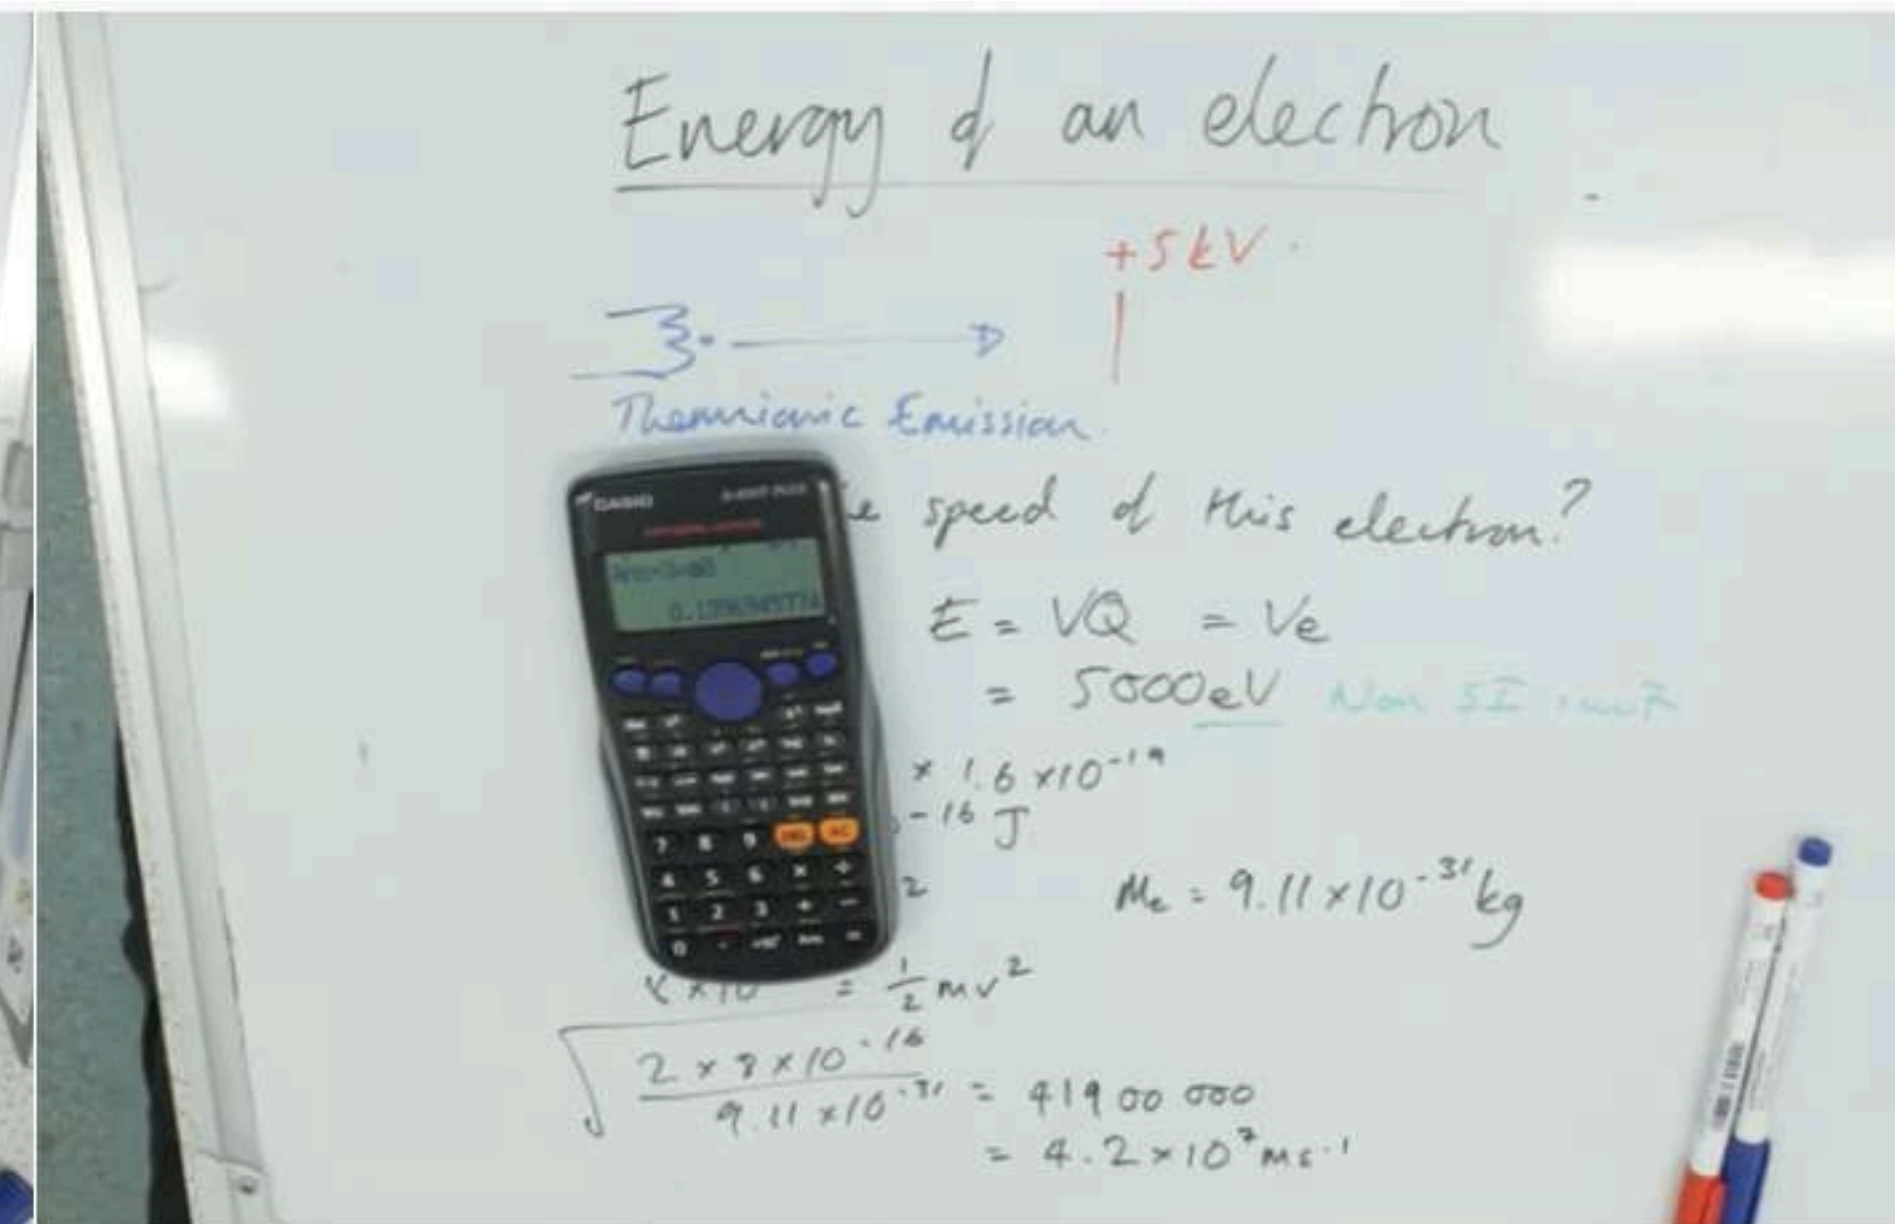 Energy of an electron
+5kV
Thermionic Emission
speed of this electron?
E = VQ = Ve
= 5000eV Non SI unit
× 1.6 ×10⁻¹⁹
-16 J
2
Me = 9.11×10⁻³¹ kg
= ½mv²
√ 2 × 8 ×10⁻¹⁶ / 9.11×10⁻³¹ = 41900 000
= 4.2×10⁷ ms⁻¹
CASIO
7 8 9 DEL AC
4 5 6 × ÷
1 2 3 + −
0 . Ans =